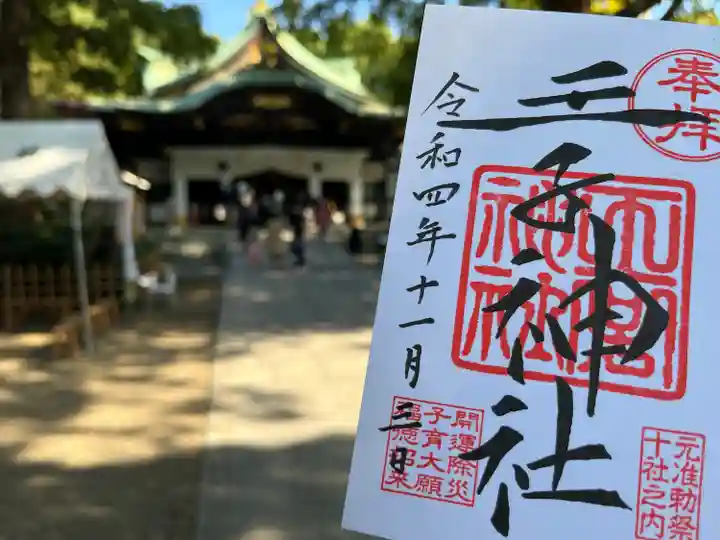 奉拝
王子神社
令和四年十一月三日
開運除災
子育大願
福徳招来
元准勅祭
十社之内